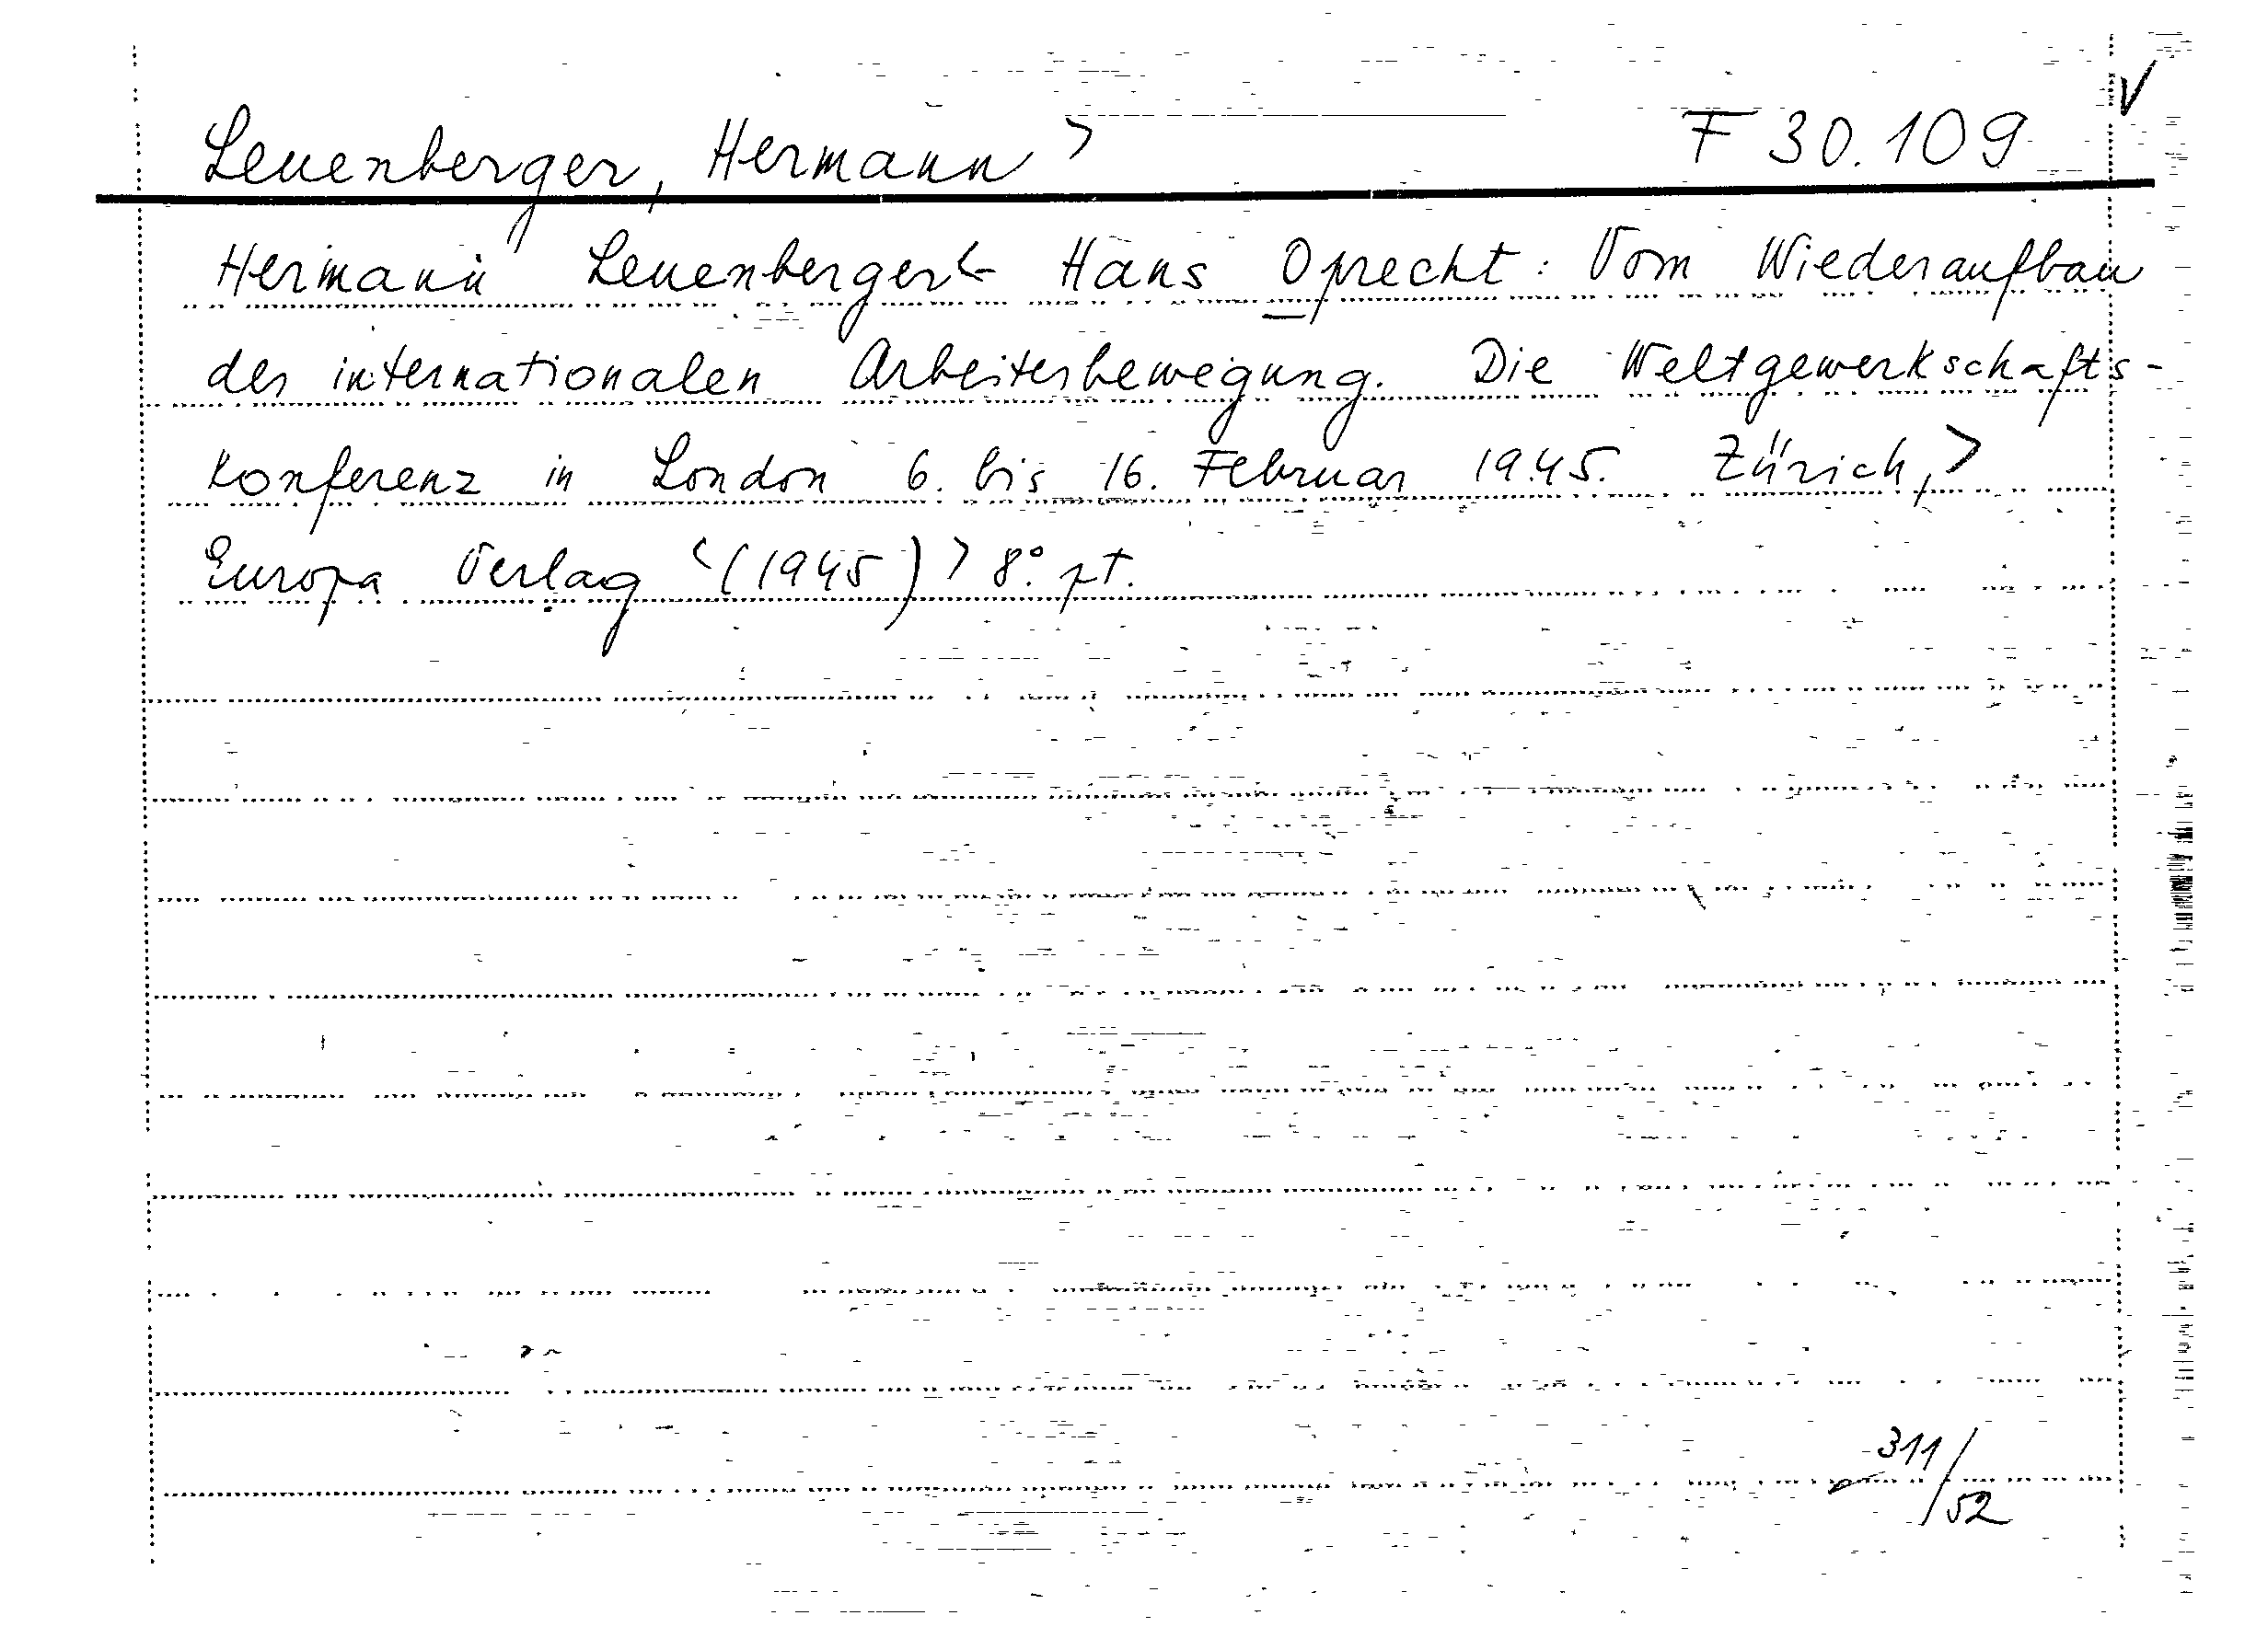 Leuenberger, Hermann > F 30.109 V
Hermann Leuenberger & Hans Oprecht: Vom Wiederaufbau
der internationalen Arbeiterbewegung. Die Weltgewerkschafts-
konferenz in London 6. bis 16. Februar 1945. Zürich, >
Europa Verlag <(1945)> 8°. pt.
311/52